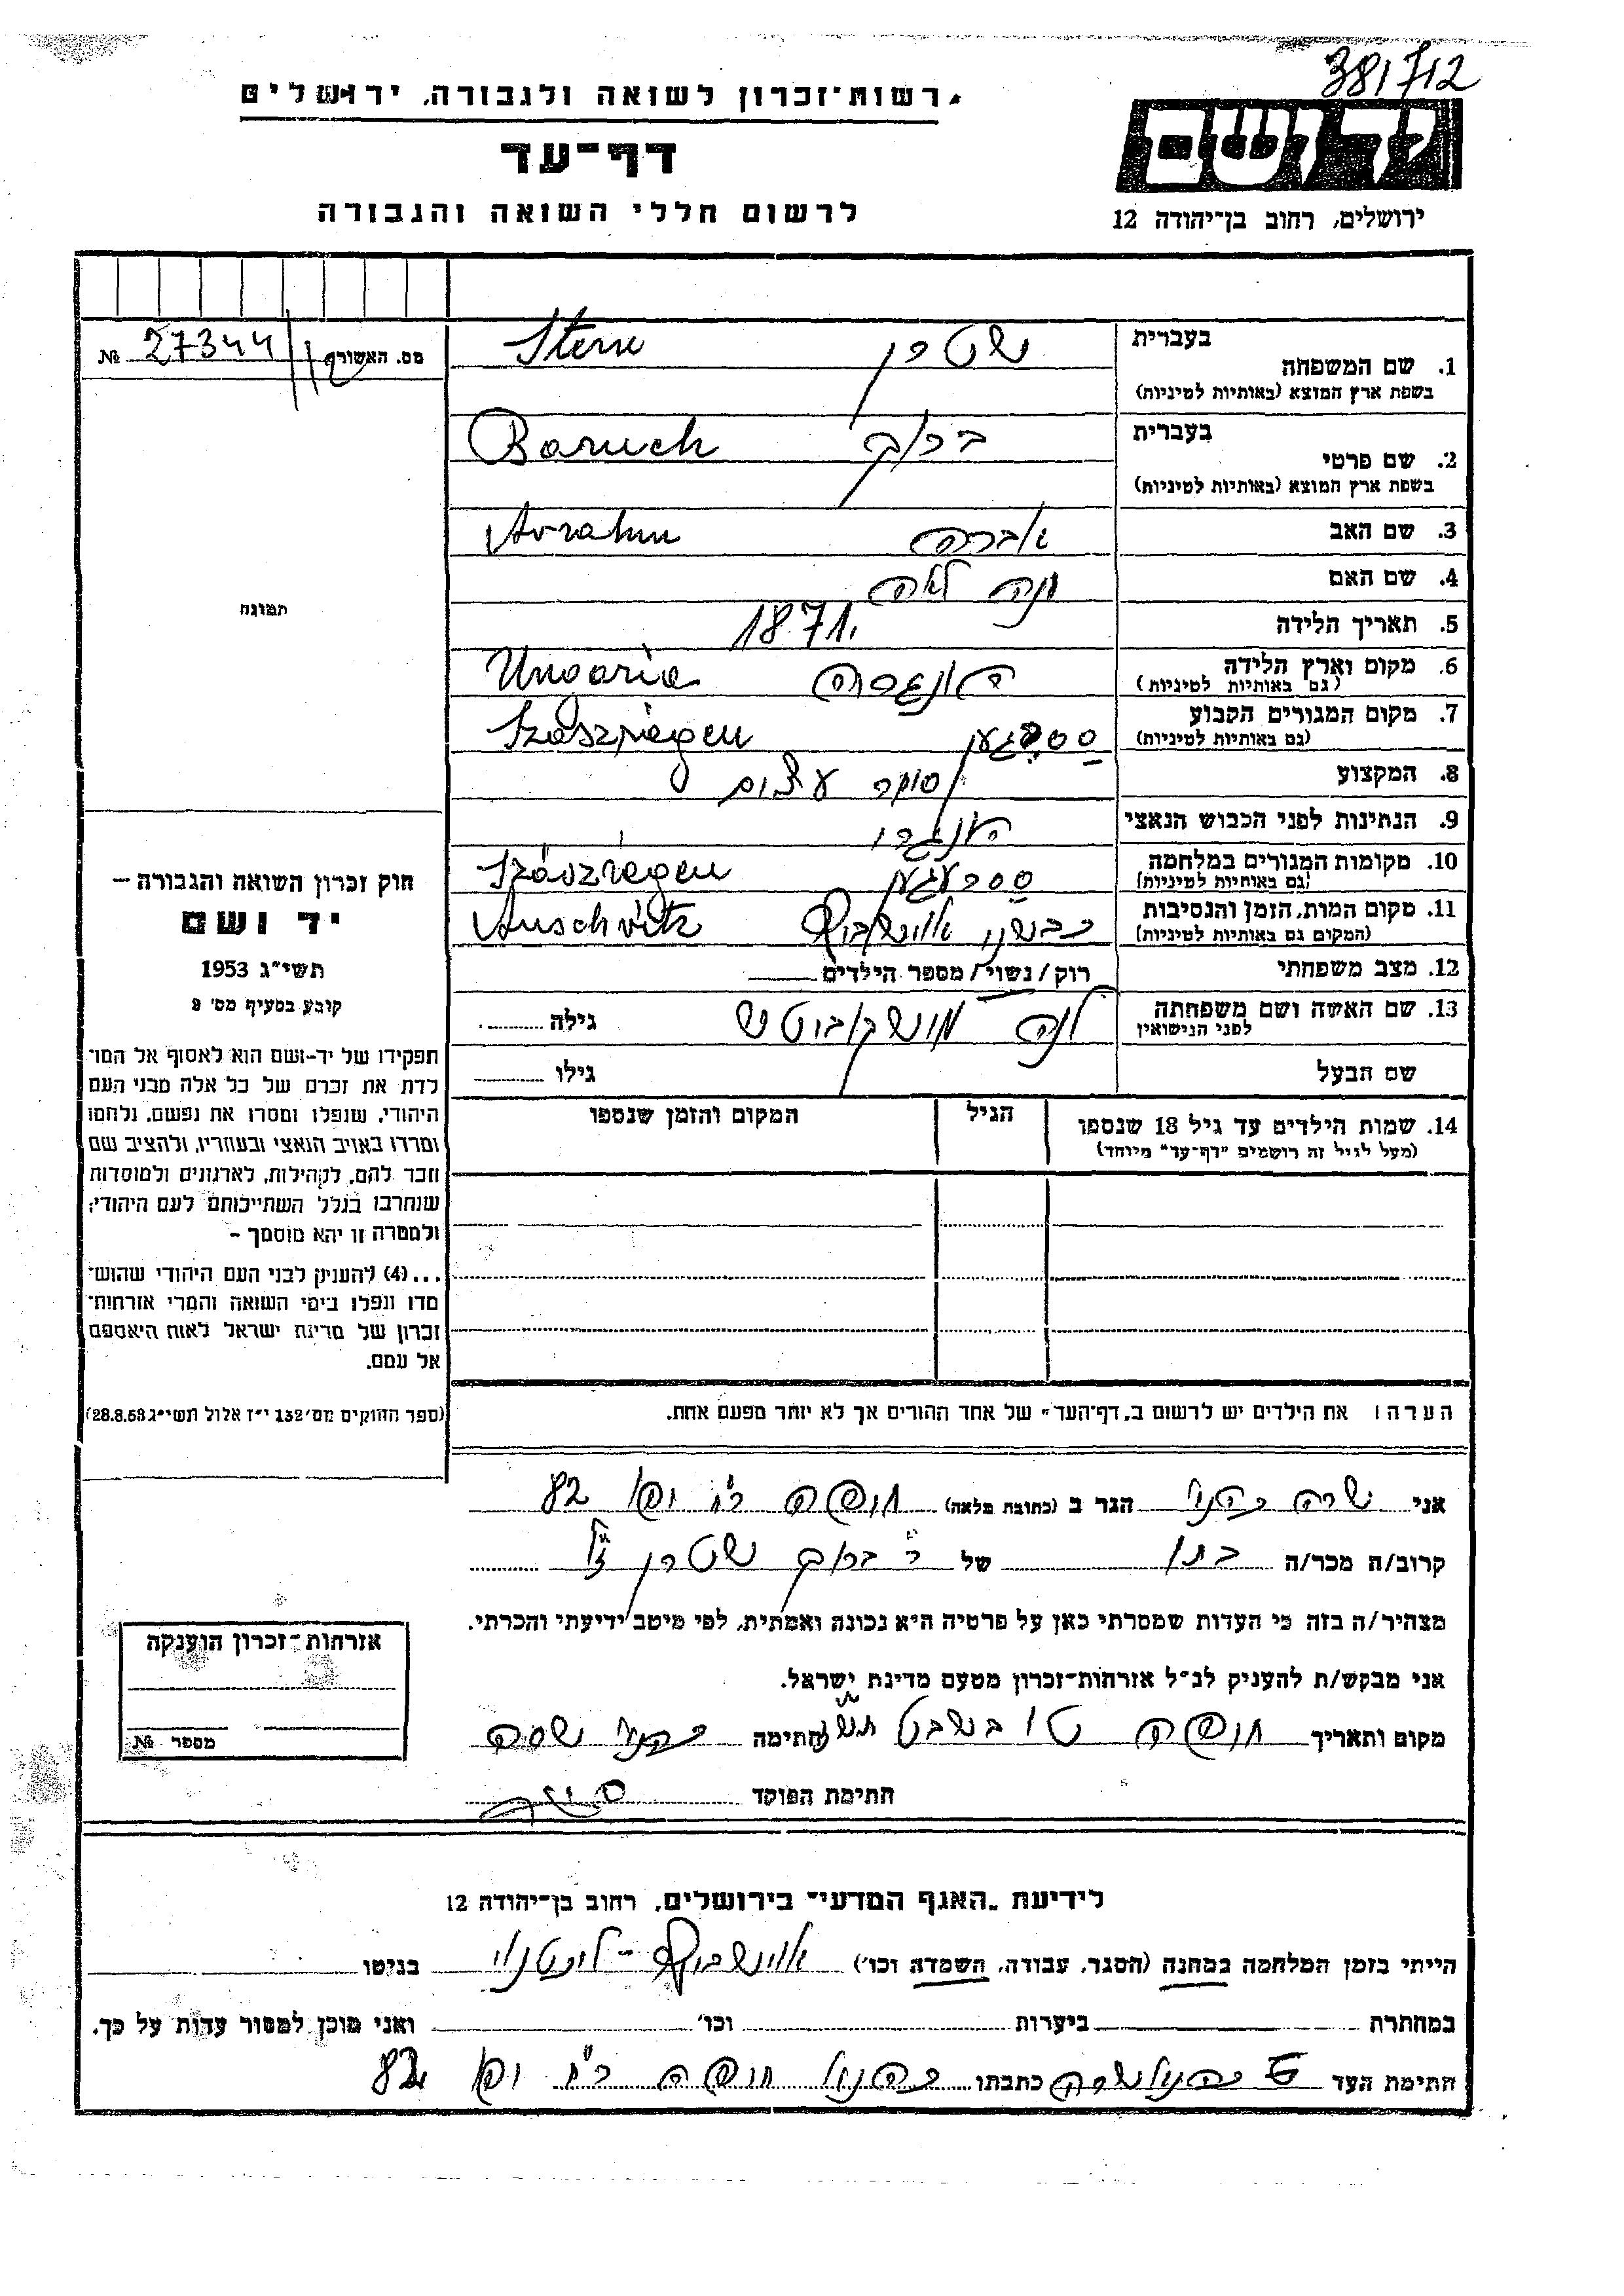 381712
רשות־זכרון לשואה ולגבורה, ירושלים
דף־עד
לרשום חללי השואה והגבורה
יד ושם
ירושלים, רחוב בן־יהודה 12
מס. האשורה № 27344
בעברית
1. שם המשפחה שטרן Stern
בשפת ארץ המוצא (באותיות לטיניות)
בעברית
2. שם פרטי ברוך Baruch
בשפת ארץ המוצא (באותיות לטיניות)
3. שם האב אברהם
4. שם האם לאה
5. תאריך הלידה 1871.
6. מקום וארץ הלידה Ungaria
(גם באותיות לטיניות)
7. מקום המגורים הקבוע Szászrégen
(גם באותיות לטיניות)
8. המקצוע סוחר עצים
9. הנתינות לפני הכבוש הנאצי
10. מקומות המגורים במלחמה Szászrégen
(גם באותיות לטיניות)
11. מקום המות, הזמן והנסיבות כבשני אושביץ Auschvitz
(המקום גם באותיות לטיניות)
12. מצב משפחתי רוק / נשוי / מספר הילדים
13. שם האשה ושם משפחתה גילה
לפני הנישואין
שם הבעל גילו
14. שמות הילדים עד גיל 18 שנספו הגיל המקום והזמן שנספו
(מעל לגיל זה רושמים "דף־עד" מיוחד)
הערה: את הילדים יש לרשום ב„דף־העד" של אחד ההורים אך לא יותר מפעם אחת.
תמונה
חוק זכרון השואה והגבורה —
יד ושם
תשי"ג 1953
קובע בסעיף מס' 2
תפקידו של יד־ושם הוא לאסוף אל המו־
לדת את זכרם של כל אלה מבני העם
היהודי, שנפלו ומסרו את נפשם, נלחמו
ומרדו באויב הנאצי ובעוזריו, ולהציב שם
וזכר להם, לקהילות, לארגונים ולמוסדות
שנחרבו בגלל השתייכותם לעם היהודי;
ולמטרה זו יהא מוסמך —
...(4) להעניק לבני העם היהודי שהוש־
מדו ונפלו בימי השואה והמרי אזרחות־
זכרון של מדינת ישראל לאות היאספם
אל עמם.
(ספר החוקים מס' 132 י"ז אלול תשי"ג 28.8.53)
אני שרה הגר ב (כתובת מלאה) חיפה 82
קרוב/ה מכר/ה בתו של ר' ברוך שטרן ז"ל
מצהיר/ה בזה כי העדות שמסרתי כאן על פרטיה היא נכונה ואמתית, לפי מיטב ידיעתי והכרתי.
אני מבקש/ת להעניק לנ"ל אזרחות־זכרון מטעם מדינת ישראל.
מקום ותאריך חיפה טו בשבט חתימה שרה
חתימת הפוקד
אזרחות־זכרון הוענקה
מספר №
לידיעת „האגף המדעי" בירושלים, רחוב בן־יהודה 12
הייתי בזמן המלחמה במחנה (הסגר, עבודה, השמדה וכו') אושביץ - בגיטו
במחתרת ביערות וכו' ואני מוכן למסור עדות על כך.
חתימת העד כתבתו חיפה 82